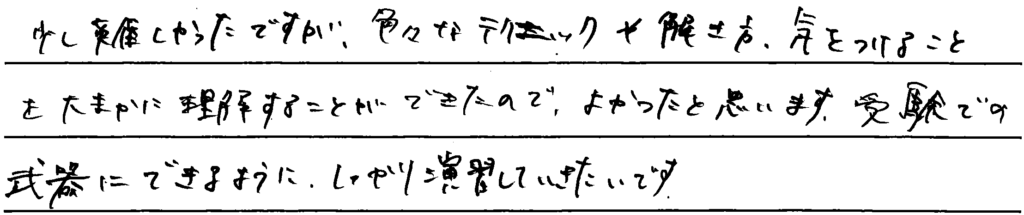 少し難しかったですが、色々なテクニックや解き方、気をつけること
を大まかに理解することができたので、よかったと思います。受験での
武器にできるように、しっかり演習していきたいです